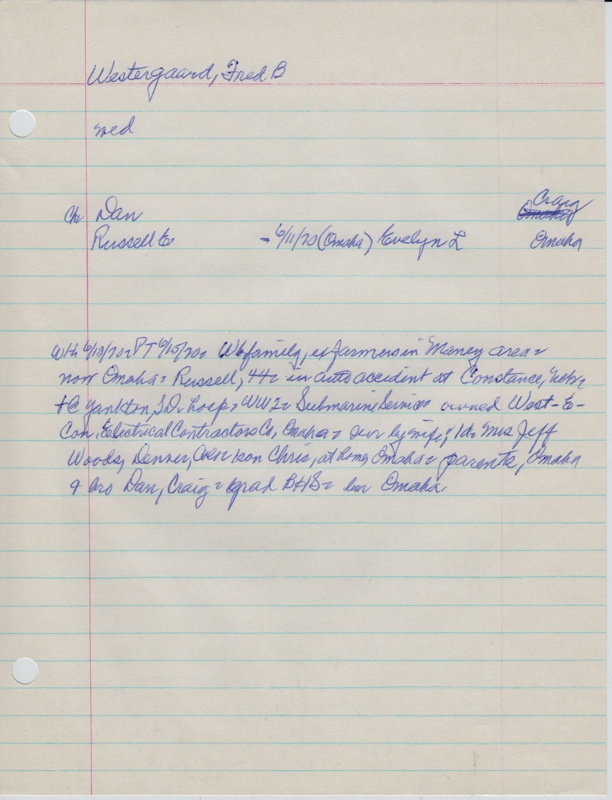 Westergaard, Fred B
med
Ch Dan Craig
Russell E - 6/11/70 (Omaha) Evelyn L Omaha
WH 6/18/70= PT 6/15/70= W family, exfarmers in Maney area=
now Omaha= Russell, 44= in auto accident at Constance, Nebr=
+C Yankton, S.D. hosp= WW2= Submarine Service owned West-E-
Con, Electrical Contractors Co, Omaha= sur by wife, 1d= Mrs Jeff
Woods, Denver, Chris, at home Omaha= parents, Omaha
& bro Dan, Craig= grad BHS= bur Omaha